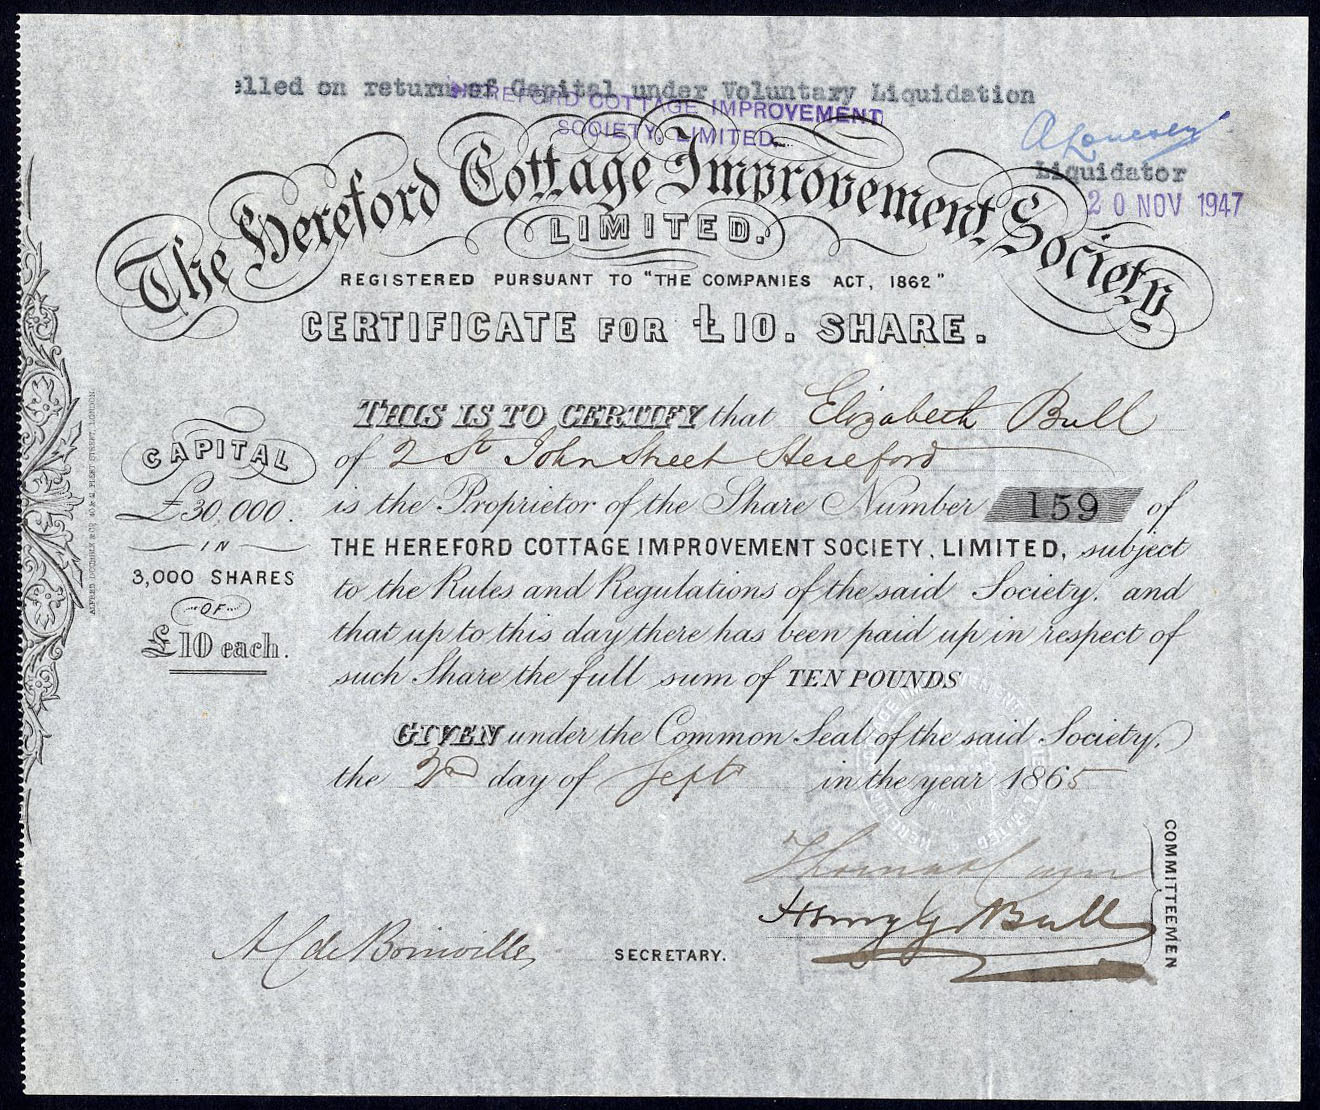 elled on return of Capital under Voluntary Liquidation
HEREFORD COTTAGE IMPROVEMENT
SOCIETY, LIMITED.
Liquidator
20 NOV 1947
The Hereford Cottage Improvement Society
LIMITED.
REGISTERED PURSUANT TO "THE COMPANIES ACT, 1862"
CERTIFICATE FOR £10. SHARE.
THIS IS TO CERTIFY that Elizabeth Bull
of 2 St John Street Hereford
is the Proprietor of the Share Number 159 of
THE HEREFORD COTTAGE IMPROVEMENT SOCIETY, LIMITED, subject
to the Rules and Regulations of the said Society, and
that up to this day there has been paid up in respect of
such Share the full sum of TEN POUNDS
GIVEN under the Common Seal of the said Society,
the 2nd day of Sept in the year 1865
CAPITAL
£30,000.
IN
3,000 SHARES
OF
£10 each.
Thomas
Henry G Bull
COMMITTEEMEN
A C de Boinville
SECRETARY.